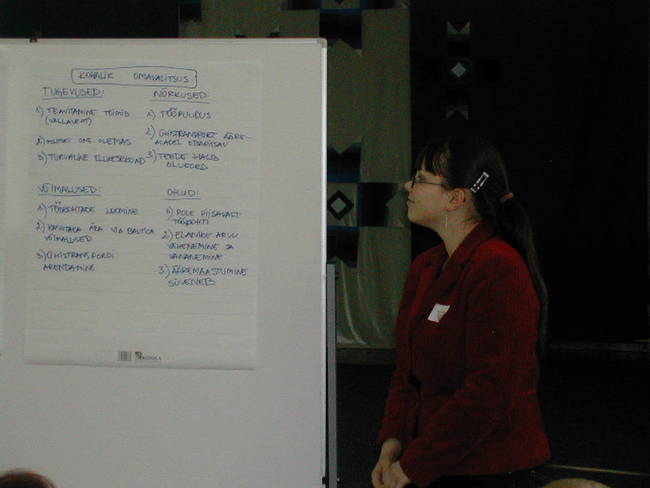 KOHALIK OMAVALITSUS
TUGEVUSED:
1) TEAVITAMINE TOIMIB
(VALLALEHT)
2) OLEMAS
3) TURVALINE ELUKESKKOND
NÕRKUSED:
1) TÖÖPUUDUS
2) ÜHISTRANSPORT ÄÄRE-
ALADEL EBAPIISAV
3) TEEDE HALB
OLUKORD
VÕIMALUSED:
1) TÖÖKOHTADE LOOMINE
2) KASUTADA ÄRA VIA BALTICA
VÕIMALUSED
3) ÜHISTRANSPORDI
ARENDAMINE
OHUD:
1) POLE PIISAVALT
TÖÖKOHTI
2) ELANIKE ARVU
VÄHENEMINE JA
VANANEMINE
3) ÄÄREMAASTUMINE
SÜVENEB